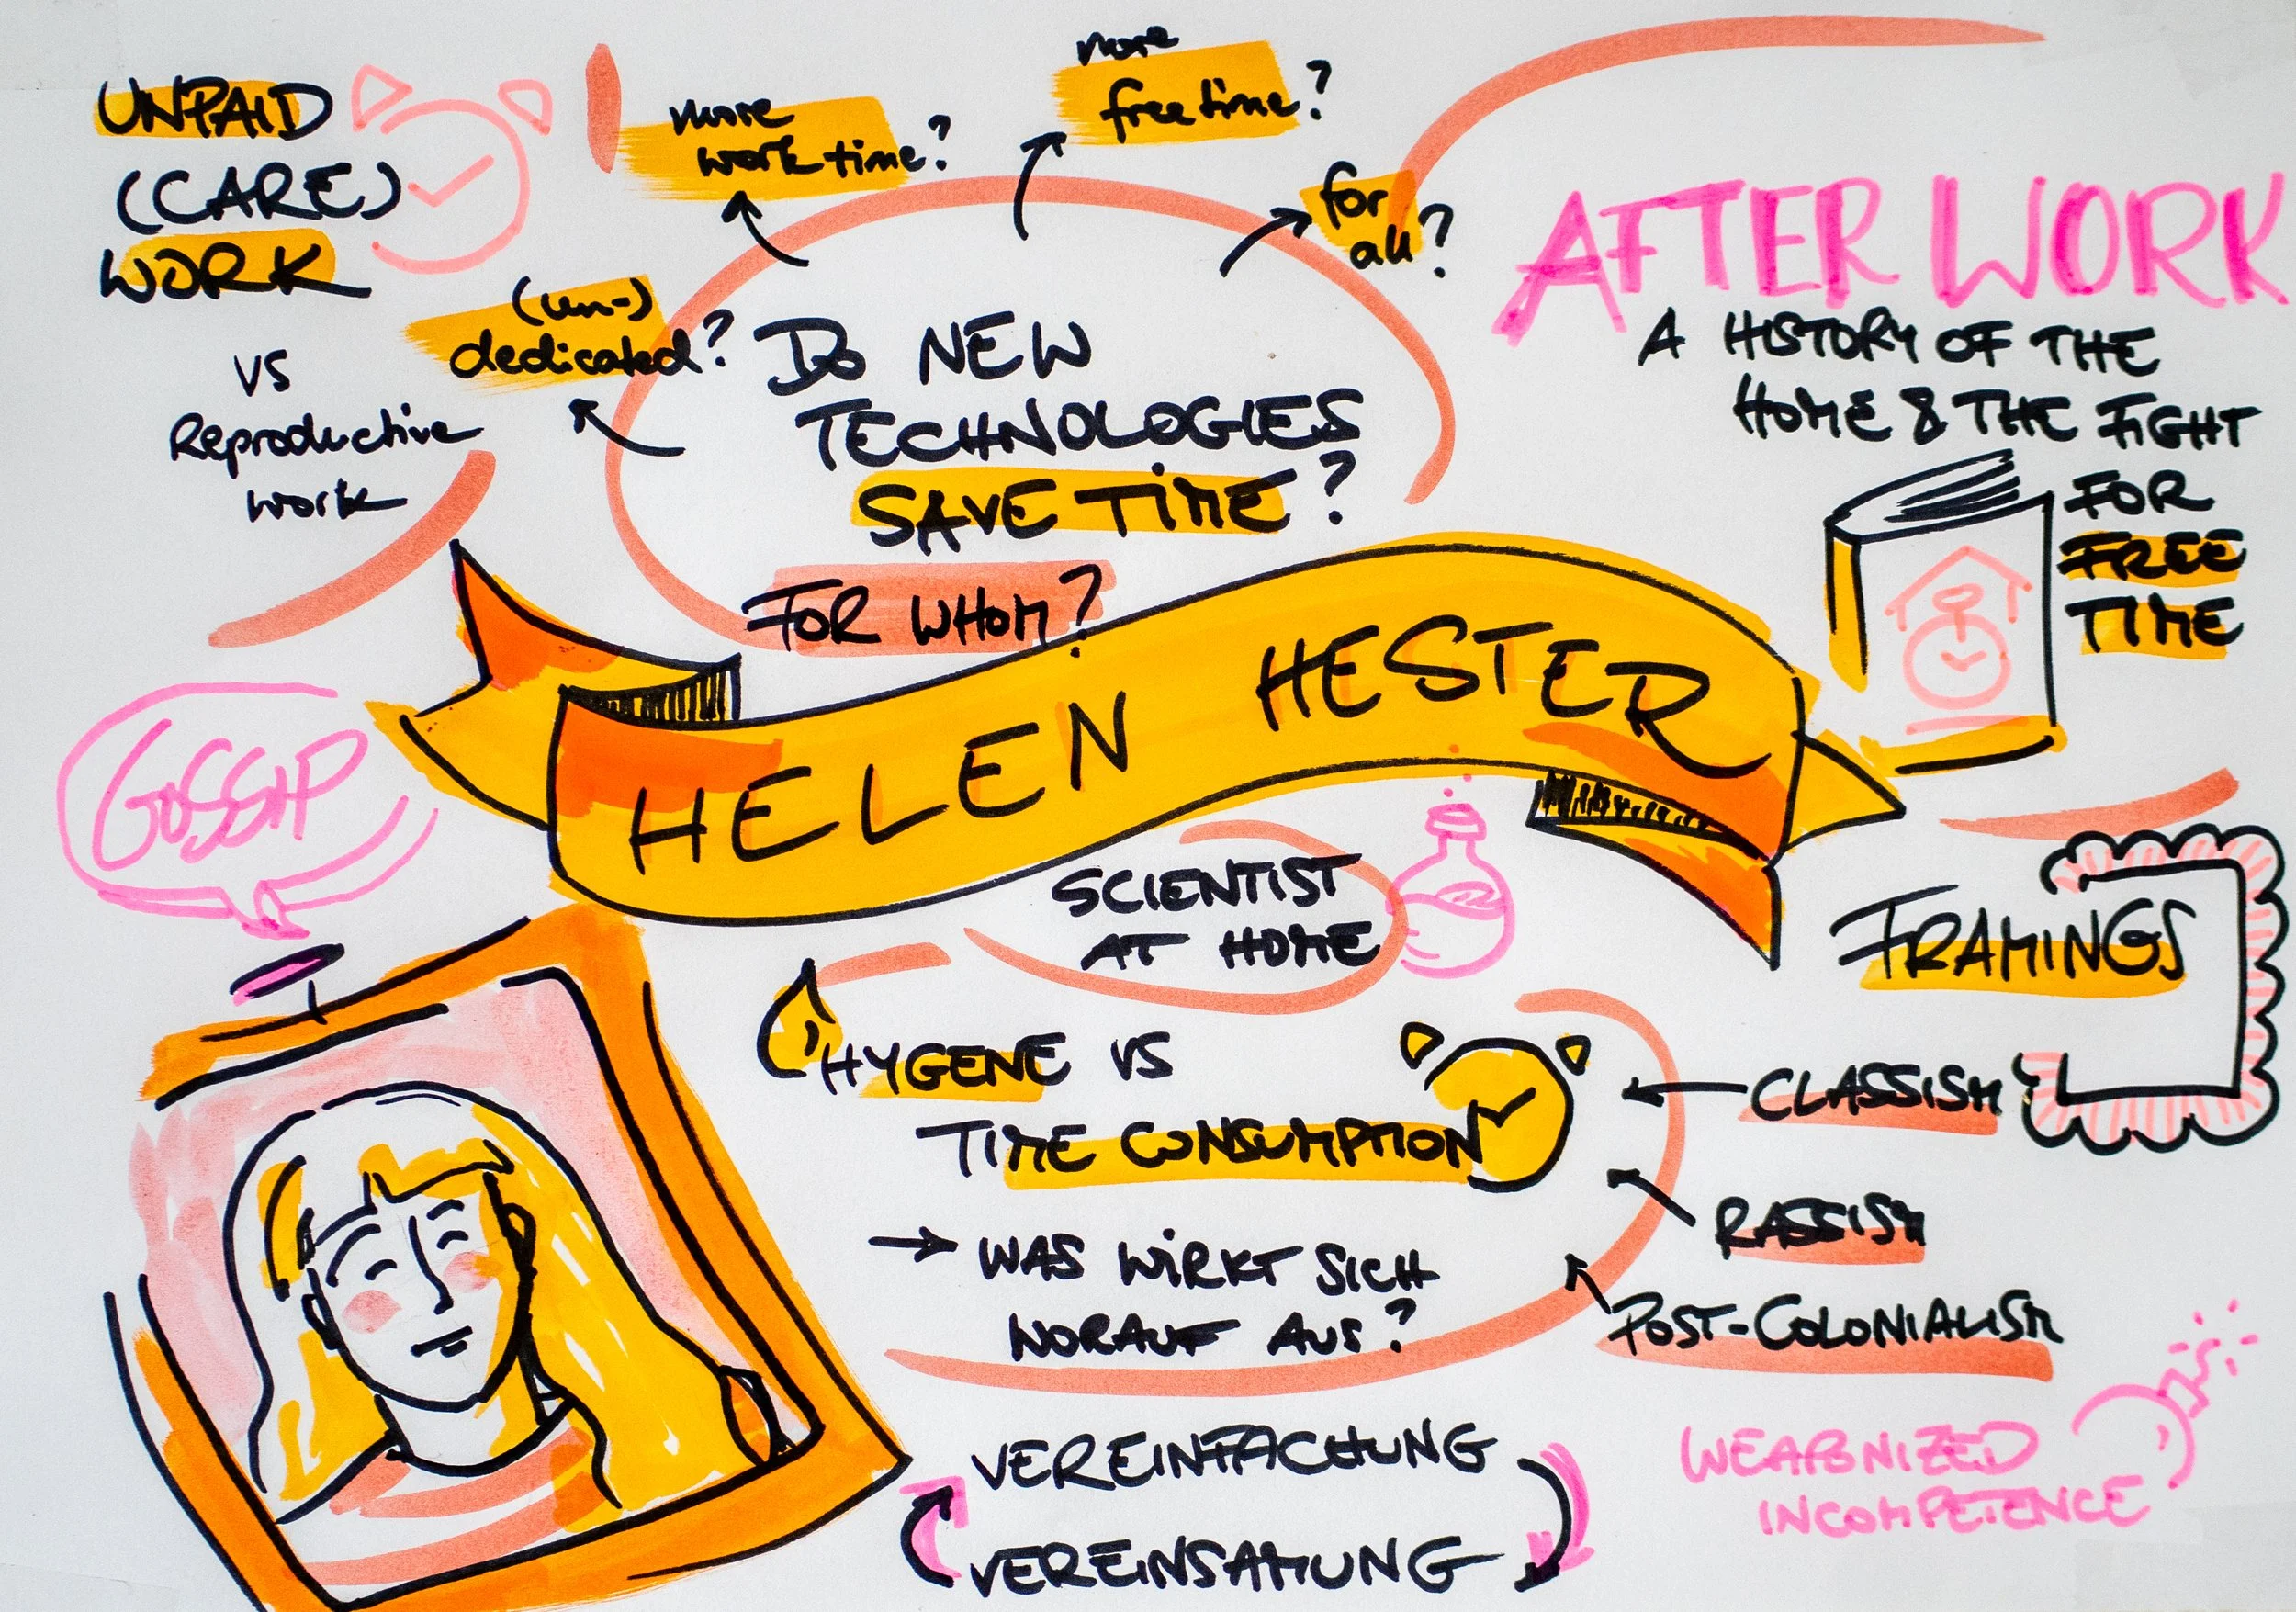 UNPAID
(CARE)
WORK
vs
Reproductive
work
(un-)
dedicated?
more
work time?
more
free time?
for
all?
DO NEW
TECHNOLOGIES
SAVE TIME?
FOR WHOM?
AFTER WORK
A HISTORY OF THE
HOME & THE FIGHT
FOR
FREE
TIME
HELEN HESTER
GOSSIP
SCIENTIST
AT HOME
FRAMINGS
HYGENE VS
TIME CONSUMPTION
→ WAS WIRKT SICH
WORAUF AUS?
CLASSISM
RASSISM
POST-COLONIALISM
VEREINFACHUNG
VEREINSAMUNG
WEAPONIZED
INCOMPETENCE